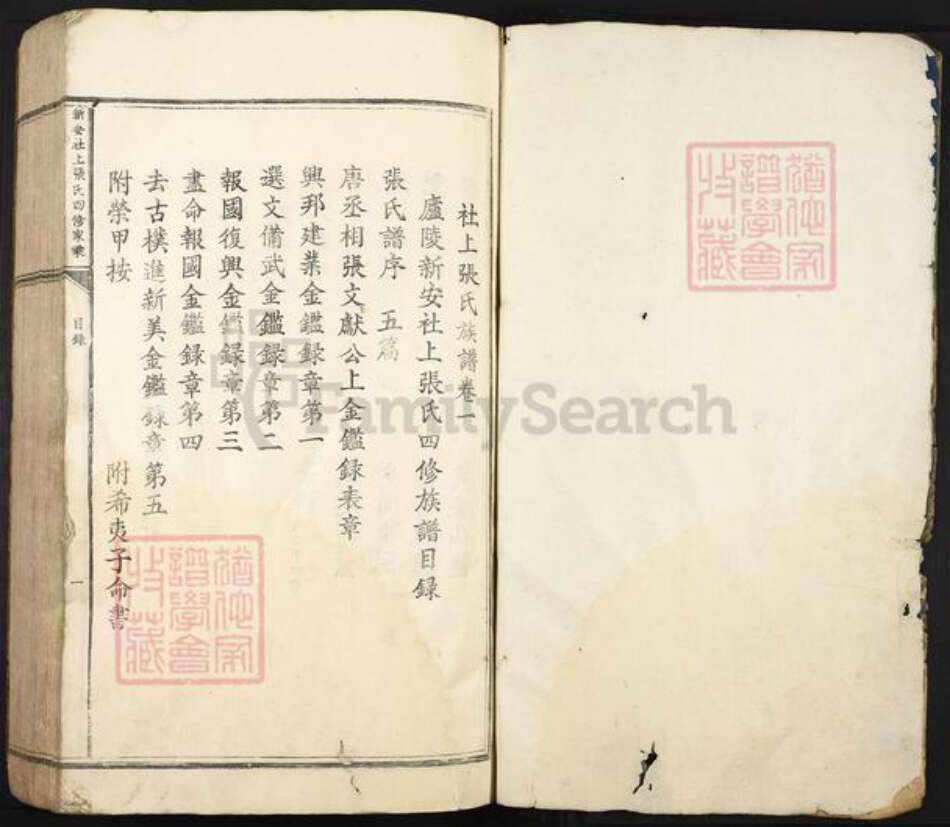 社上張氏族譜卷一
廬陵新安社上張氏四修族譜目録
張氏譜序　五篇
唐丞相張文獻公上金鑑録表章
興邦建業金鑑録章第一
選文備武金鑑録章第二
報國復興金鑑録章第三
盡命報國金鑑録章第四
去古樸進新美金鑑録章第五
附榮甲按　附希夷子命書
新安社上張氏四修家乘
目録
一
譜學會
收藏
譜學會
收藏
FamilySearch